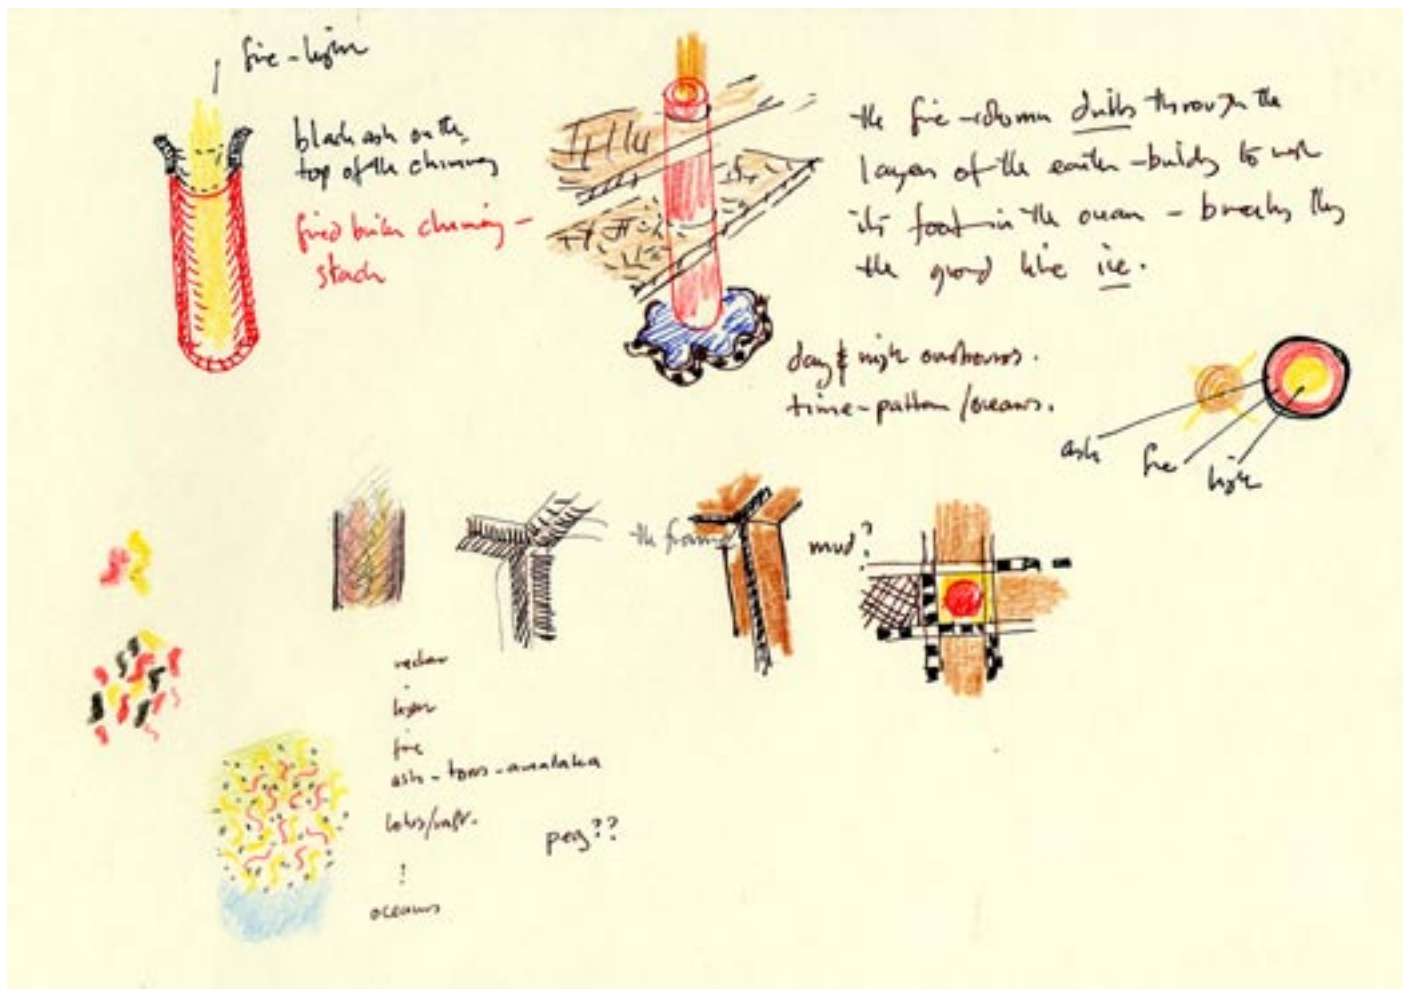 fire-light
black ash on the
top of the chimney
fired brick chimney-
stack
the fire-column drills through the
layers of the earth - builds to wash
its foot in the ocean - breaks thro
the ground like ice.
day & night
time-pattern/oceans.
ash
fire
light
the frame
mud?
light
fire
ash - torus - amalaka
lotus/raft.
peg??
!
oceans